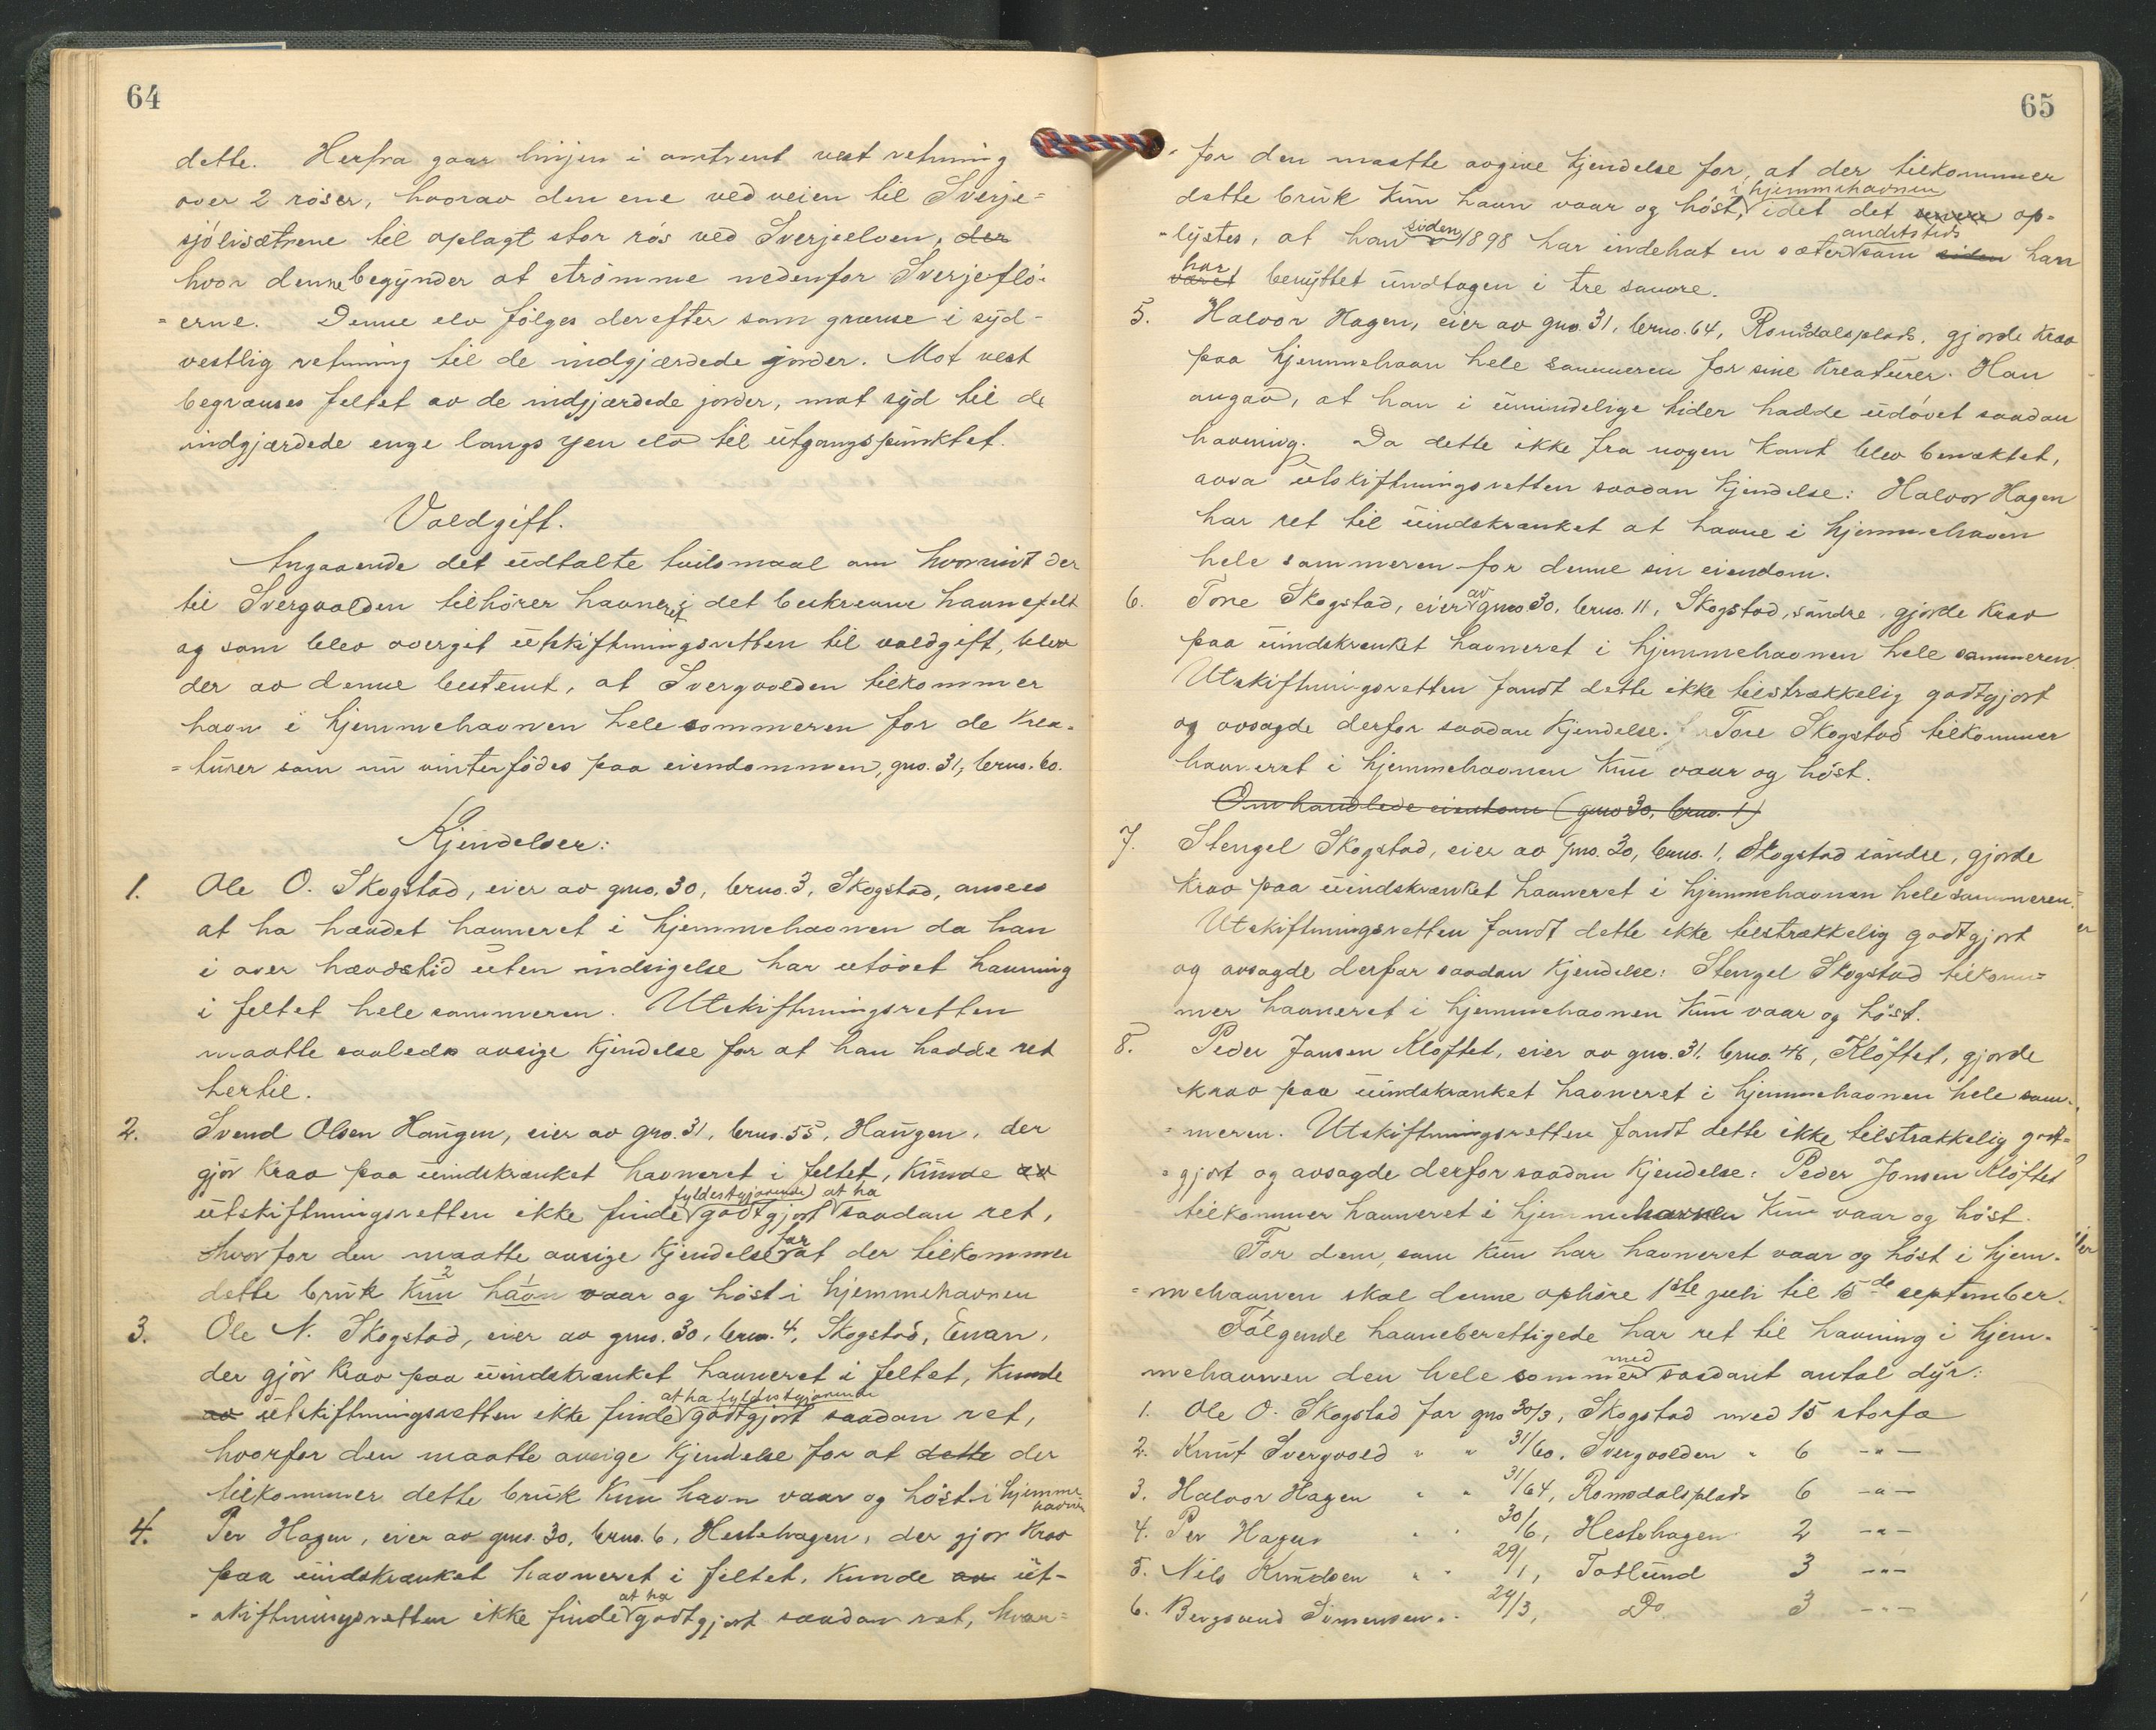 64
dette. Herfra gaar linjen i omtrent vest retning
over 2 röser, hvorav den ene ved veien til Sverje=
sjölisætrene til oplagt stor rös ved Sverjeelven, der
hvor denne begynder at strømme nedenfor Sverjeflö-
=erne. Denne elv fölges derefter som grænse i syd-
vestlig retning til de indgjærdede jorder. Mot vest
begrænses feltet av de indjærdede jorder, mot syd til de
indgjærdede enge langs Yen elv til utgangspunktet.
Voldgift.
Angaaende det udtalte tvilsmaal om hvorvidt der
til Svergvolden tilhörer havneret i det beskrevne havnefelt
og som blev overgit utskiftningsretten til voldgift, blev
der av denne bestemt, at Svergvolden tilkommer
havn i hjemmehavnen hele sommeren for de krea-
=turer som nu vinterfödes paa eiendommen, gno. 31, brno. 60.
Kjendelser:
1. Ole O. Skogstad, eier av gno. 30, brno. 3, Skogstad, ansees
at ha hævdet havneret i hjemmehavnen da han
i over hævdstid uten indsigelse har utövet havning
i feltet hele sommeren. Utskiftningsretten
maatte saaledes avsige kjendelse for at han hadde ret
hertil.
2. Svend Olsen Haugen, eier av gno. 31, brno. 55, Haugen, der
gjör krav paa uindskrænket havneret i feltet, kunde av
utskiftningsretten ikke finde fyldestgjörende godtgjort at ha saadan ret,
hvorfor den maatte avsige kjendelse for at der tilkommer
dette bruk kun havn vaar og höst i hjemmehavnen
3. Ole N. Skogstad, eier av gno. 30, brno. 4, Skogstad, Enan,
der gjör krav paa uindskrænket havneret i feltet, kunde
av utskiftningsretten ikke finde at ha fyldestgjörende godtgjort saadan ret,
hvorfor den maatte avsige kjendelse for at dette der
tilkommer dette bruk kun havn vaar og höst i hjemme-
havnen
4. Per Hagen, eier av gno. 30, brno. 6, Hestehagen, der gjör krav
paa uindskrænket havneret i feltet, kunde av ut-
-skiftningsretten ikke finde at ha godtgjort saadan ret, hvor=
65
-for den maatte avgive kjendelse for, at der tilkommer
dette bruk kun havn vaar og höst, i hjemmehavnen idet det senere op-
-lystes, at han siden 1898 har indehat en sæter andetsteds som siden han
været har benyttet undtagen i tre somre.
5. Halvor Hagen, eier av gno. 31, brno. 64, Romsdalsplads, gjorde krav
paa hjemmehavn hele sommeren for sine kreaturer. Han
angav, at han i umindelige tider hadde udövet saadan
havning. Da dette ikke fra nogen kant blev benæktet,
avsa utskiftningsretten saadan kjendelse: Halvor Hagen
har ret til uindskrænket at havne i hjemmehavnen
hele sommeren for denne sin eiendom.
6. Tore Skogstad, eier av gno. 30, brno. 11, Skogstad, söndre, gjorde krav
paa uindskrænket havneret i hjemmehavnen hele sommeren.
Utskiftningsretten fandt dette ikke tilstrækkelig godtgjort
og avsagde derfor saadan kjendelse: Tore Skogstad tilkommer
havneret i hjemmehavnen kun vaar og höst.
Omhandlede eiendom (gno 30, brno. 1)
7. Stengel Skogstad, eier av gno. 30, brno. 1, Skogstad söndre, gjorde
krav paa uindskrænket havneret i hjemmehavnen hele sommeren.
Utskiftningsretten fandt dette ikke tilstrækkelig godtgjort
og avsagde derfor saadan kjendelse: Stengel Skogstad tilkom=
mer havneret i hjemmehavnen kun vaar og höst.
8. Peder Jonsen Klöftet, eier av gno. 31, brno. 46, Klöftet, gjorde
krav paa uindskrænket havneret i hjemmehavnen hele som-
=meren. Utskiftningsretten fandt dette ikke tilstrækkelig godt=
=gjort og avsagde derfor saadan kjendelse: Peder Jonsen Klöftet
tilkommer havneret i hjemmehavnen kun vaar og höst.
For dem, som kun har havneret vaar og höst i hjem-
=mehavnen skal denne ophöre 1ste juli til 15de september.
Fölgende havneberettigede har ret til havning i hjem-
mehavnen den hele sommer med saadant antal dyr:
1. Ole O. Skogstad for gno 30/3, Skogstad med 15 storfæ
2. Knut Svergvold " " 31/60, Svergvolden " 6 -"-
3. Halvor Hagen " " 31/64, Romsdalsplads 6 -"-
4. Per Hagen " " 30/6, Hestehagen 2 -"-
5. Nils Knudsen " " 29/1, Toslund 3 -"-
6. Bergsvend Simensen " " 29/3, Do 3 -"-